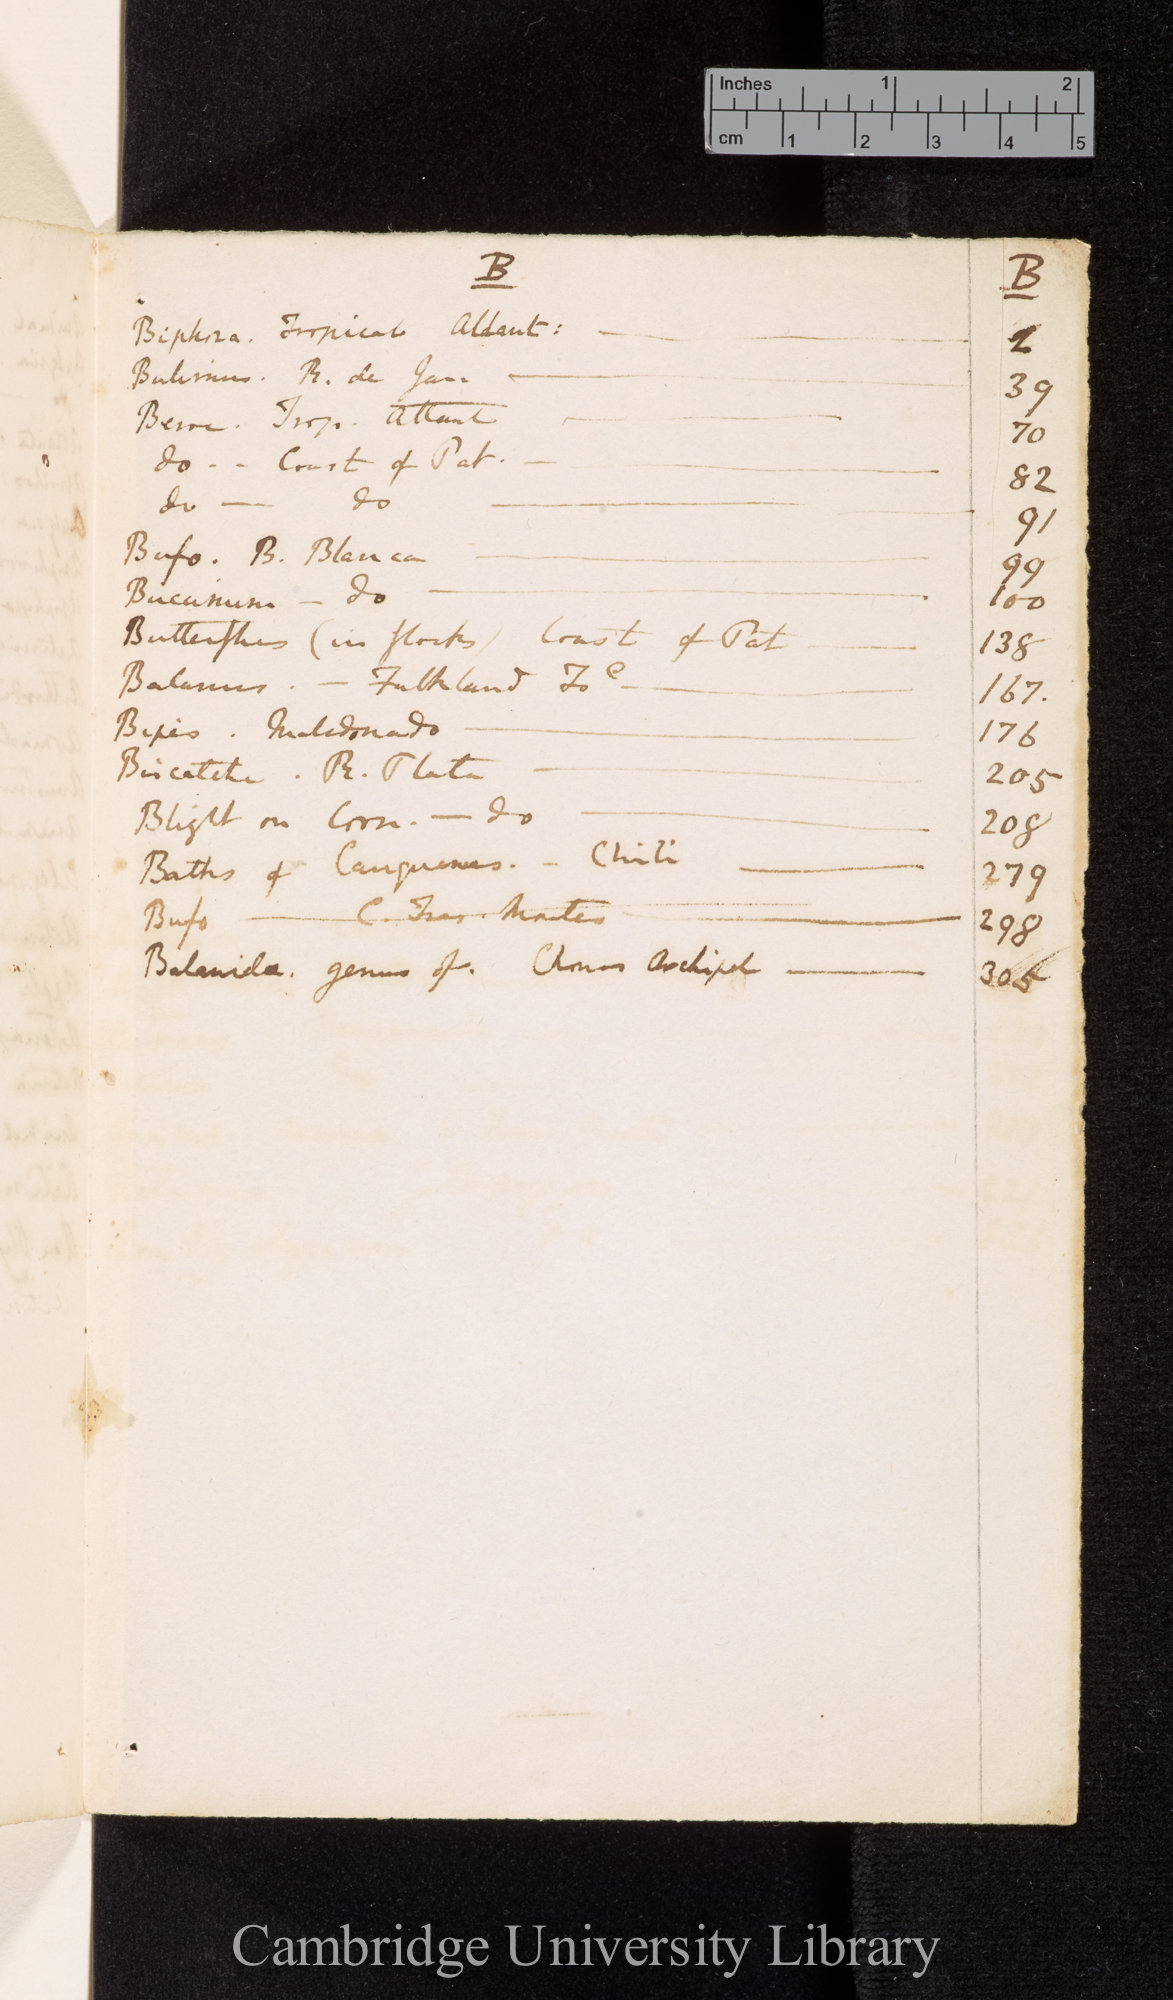 Inches 1 2
cm 1 2 3 4 5
B B
Biphora. Tropical Atlant: — 2
Bulimus. R. de Jan — 39
Beroe. Trop. Atlant — 70
do - - Coast of Pat. — 82
do — do — 91
Bufo. B. Blanca — 99
Buccinum — do — 100
Butterflies (in flocks) Coast of Pat — 138
Balanus. — Falkland Is — 167.
Bipes. Maldonado — 176
Biscatche. R. Plata — 205
Blight on Corn. — do — 208
Baths of Cauquenes. — Chili — 279
Bufo — C. Tres Montes — 298
Balanidæ. genus of. Chonos Archipel — 305
Cambridge University Library